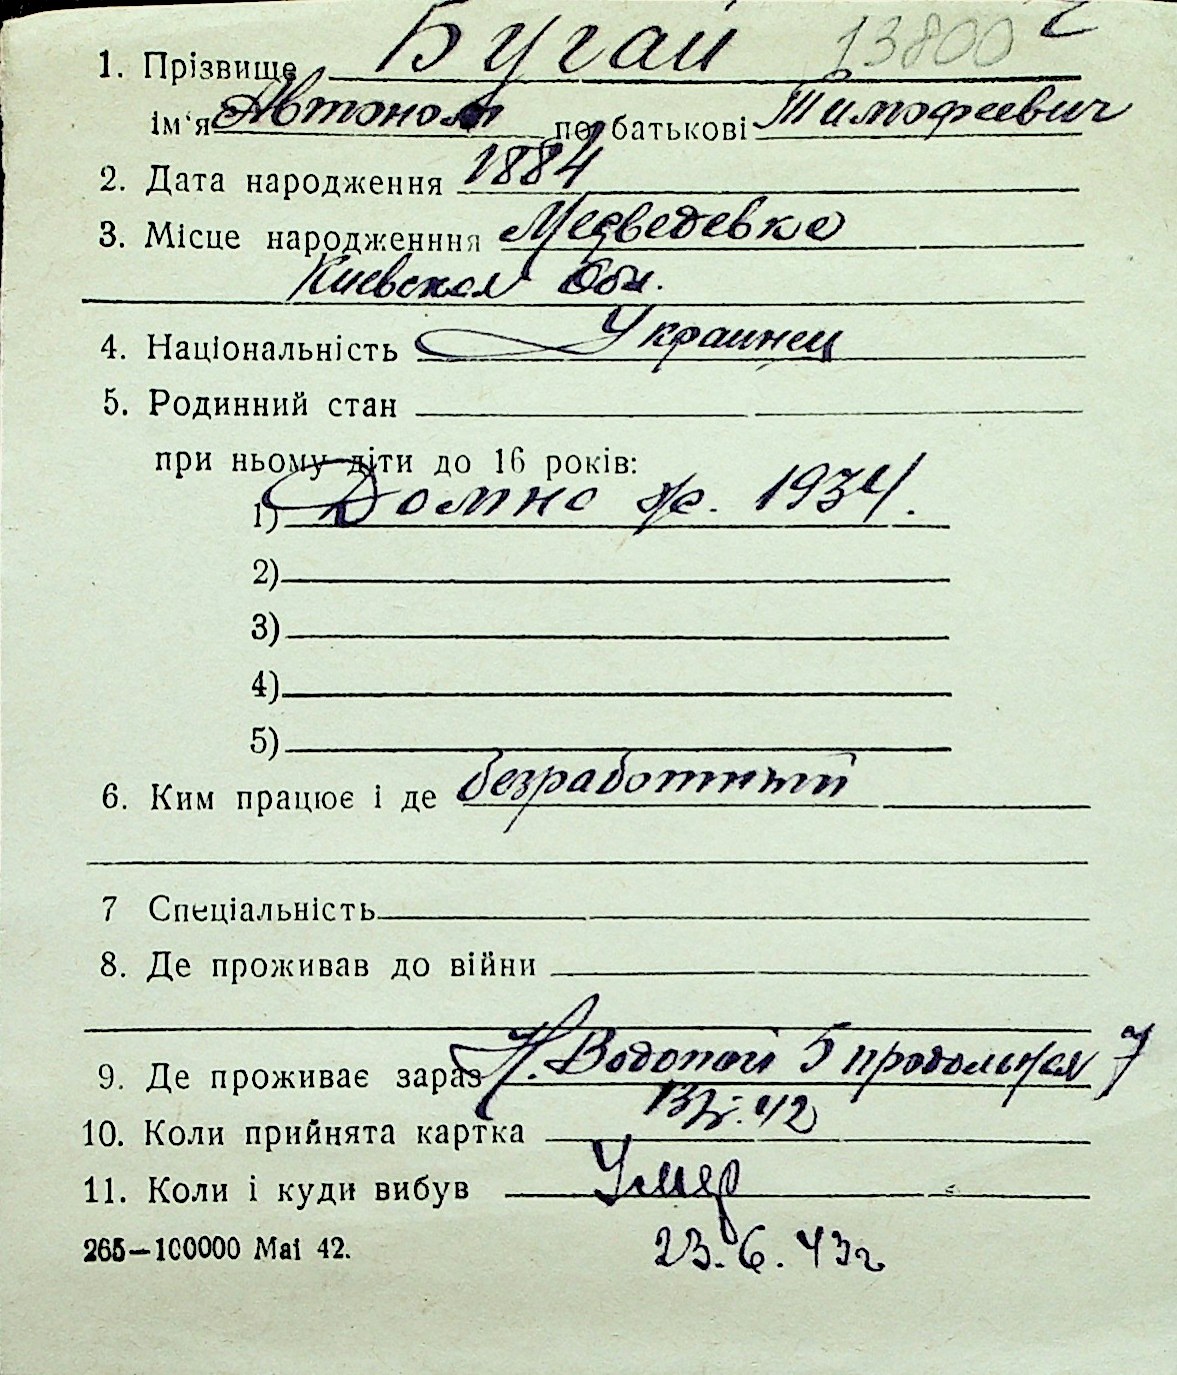 1. Прізвище Бугай 13800
ім'я Автоном по батькові Тимофеевич
2. Дата народження 1884
3. Місце народженння Медведевка
Киевская Обл.
4. Національність Украинец
5. Родинний стан
при ньому діти до 16 років:
1) Домна 1934.
2)
3)
4)
5)
6. Ким працює і де безработный
7 Спеціальність
8. Де проживав до війни
9. Де проживає зараз Водопой 5 продольная 7
10. Коли прийнята картка
11. Коли і куди вибув Умер
265—100000 Mai 42. 23.6.43г